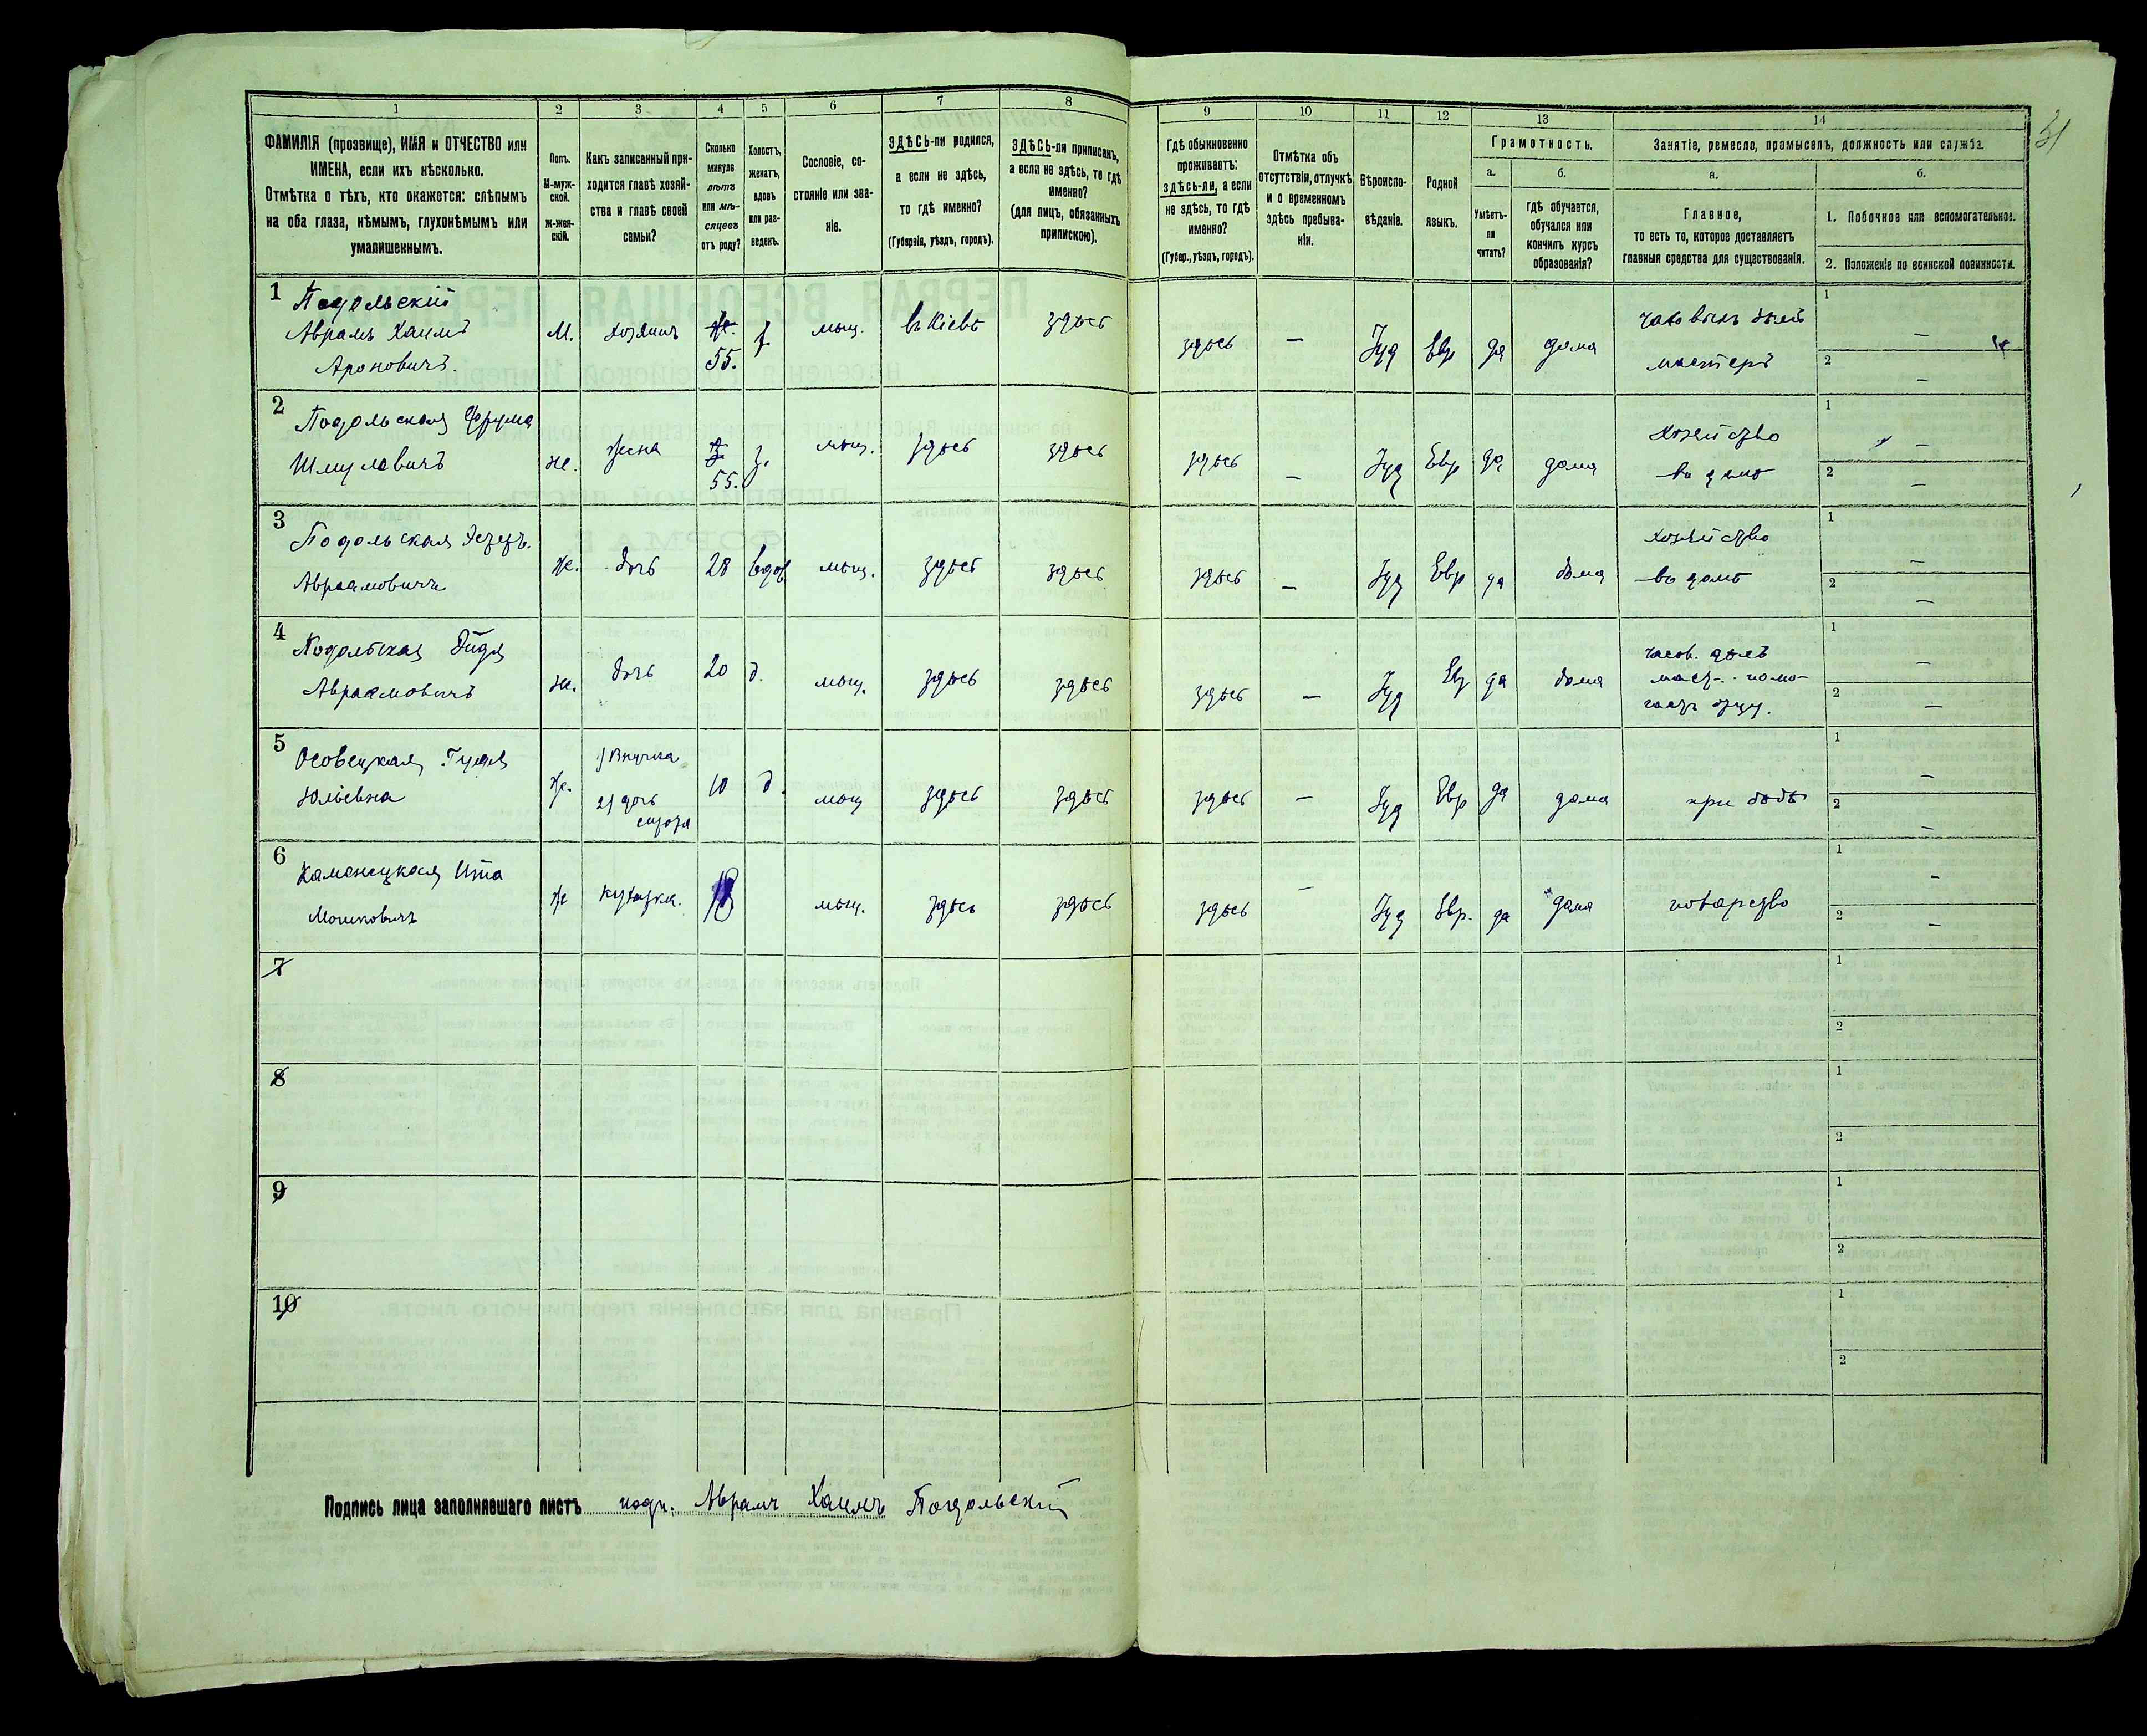 1
2
3
4
5
6
7
8
9
10
11
12
13
14
31
ФАМИЛІЯ (прозвище), ИМЯ и ОТЧЕСТВО или
ИМЕНА, если ихъ нѣсколько.
Отмѣтка о тѣхъ, кто окажется: слѣпымъ
на оба глаза, нѣмымъ, глухонѣмымъ или
умалишеннымъ.
Полъ.
М-муж-
ской.
ж-жен-
скій.
Какъ записанный при-
ходится главѣ хозяй-
ства и главѣ своей
семьи?
Сколько
минуло
лѣтъ
или мѣ-
сяцевъ
отъ роду?
Холостъ,
женатъ,
вдовъ
или раз-
веденъ.
Сословіе, со-
стояніе или зва-
ніе.
ЗДѢСЬ-ли родился,
а если не здѣсь,
то гдѣ именно?
(Губернія, уѣздъ, городъ).
ЗДѢСЬ-ли приписанъ,
а если не здѣсь, то гдѣ
именно?
(для лицъ, обязанныхъ
припискою).
Гдѣ обыкновенно
проживаетъ:
здѣсь-ли, а если
не здѣсь, то гдѣ
именно?
(Губер., уѣздъ, городъ).
Отмѣтка объ
отсутствіи, отлучкѣ
и о временномъ
здѣсь пребыва-
ніи.
Вѣроиспо-
вѣданіе.
Родной
языкъ.
Грамотность.
а.
Умѣетъ-
ли
читать?
б.
гдѣ обучается,
обучался или
кончилъ курсъ
образованія?
Занятіе, ремесло, промыселъ, должность или служба.
а.
Главное,
то есть то, которое доставляетъ
главныя средства для существованія.
б.
1. Побочное или вспомогательное.
2. Положеніе по воинской повинности.
1 Подольскій
Аврамъ Хаимъ
Ароновичъ.
М.
хозяинъ
55.
мѣщ.
въ Кіевѣ
здѣсь
здѣсь
—
Іуд
Евр
да
дома
часовыхъ дѣлъ
мастеръ
1
—
2
—
2 Подольская Фрума
Шмуловичъ
же.
жена
55.
з.
мѣщ.
здѣсь
здѣсь
здѣсь
—
Іуд
Евр
да
дома
хозяйство
въ домѣ
1
—
2
—
3 Подольская
Авраамовичъ
же.
дочь
28
вдов.
мѣщ.
здѣсь
здѣсь
здѣсь
—
Іуд
Евр
да
дома
хозяйство
въ домѣ
1
—
2
—
4 Подольская
Авраамовичъ
же.
дочь
20
д.
мѣщ.
здѣсь
здѣсь
здѣсь
—
Іуд
Евр
да
дома
часов. дѣлъ
маст. помо-
гаетъ отцу.
1
—
2
—
5 Осовецкая
Юліевна
же.
1) Внучка
2) дочь
сирота
10
д.
мѣщ
здѣсь
здѣсь
здѣсь
—
Іуд
Евр
да
дома
при дѣдѣ
1
—
2
—
6 Каменецкая Ита
Мошковичъ
же
кухарка.
18
мѣщ.
здѣсь
здѣсь
здѣсь
—
Іуд
Евр.
да
дома
поварство
1
—
2
—
7
1
2
8
1
2
9
1
2
10
1
2
Подпись лица заполнявшаго листъ подп. Аврамъ Хаимъ Подольскій